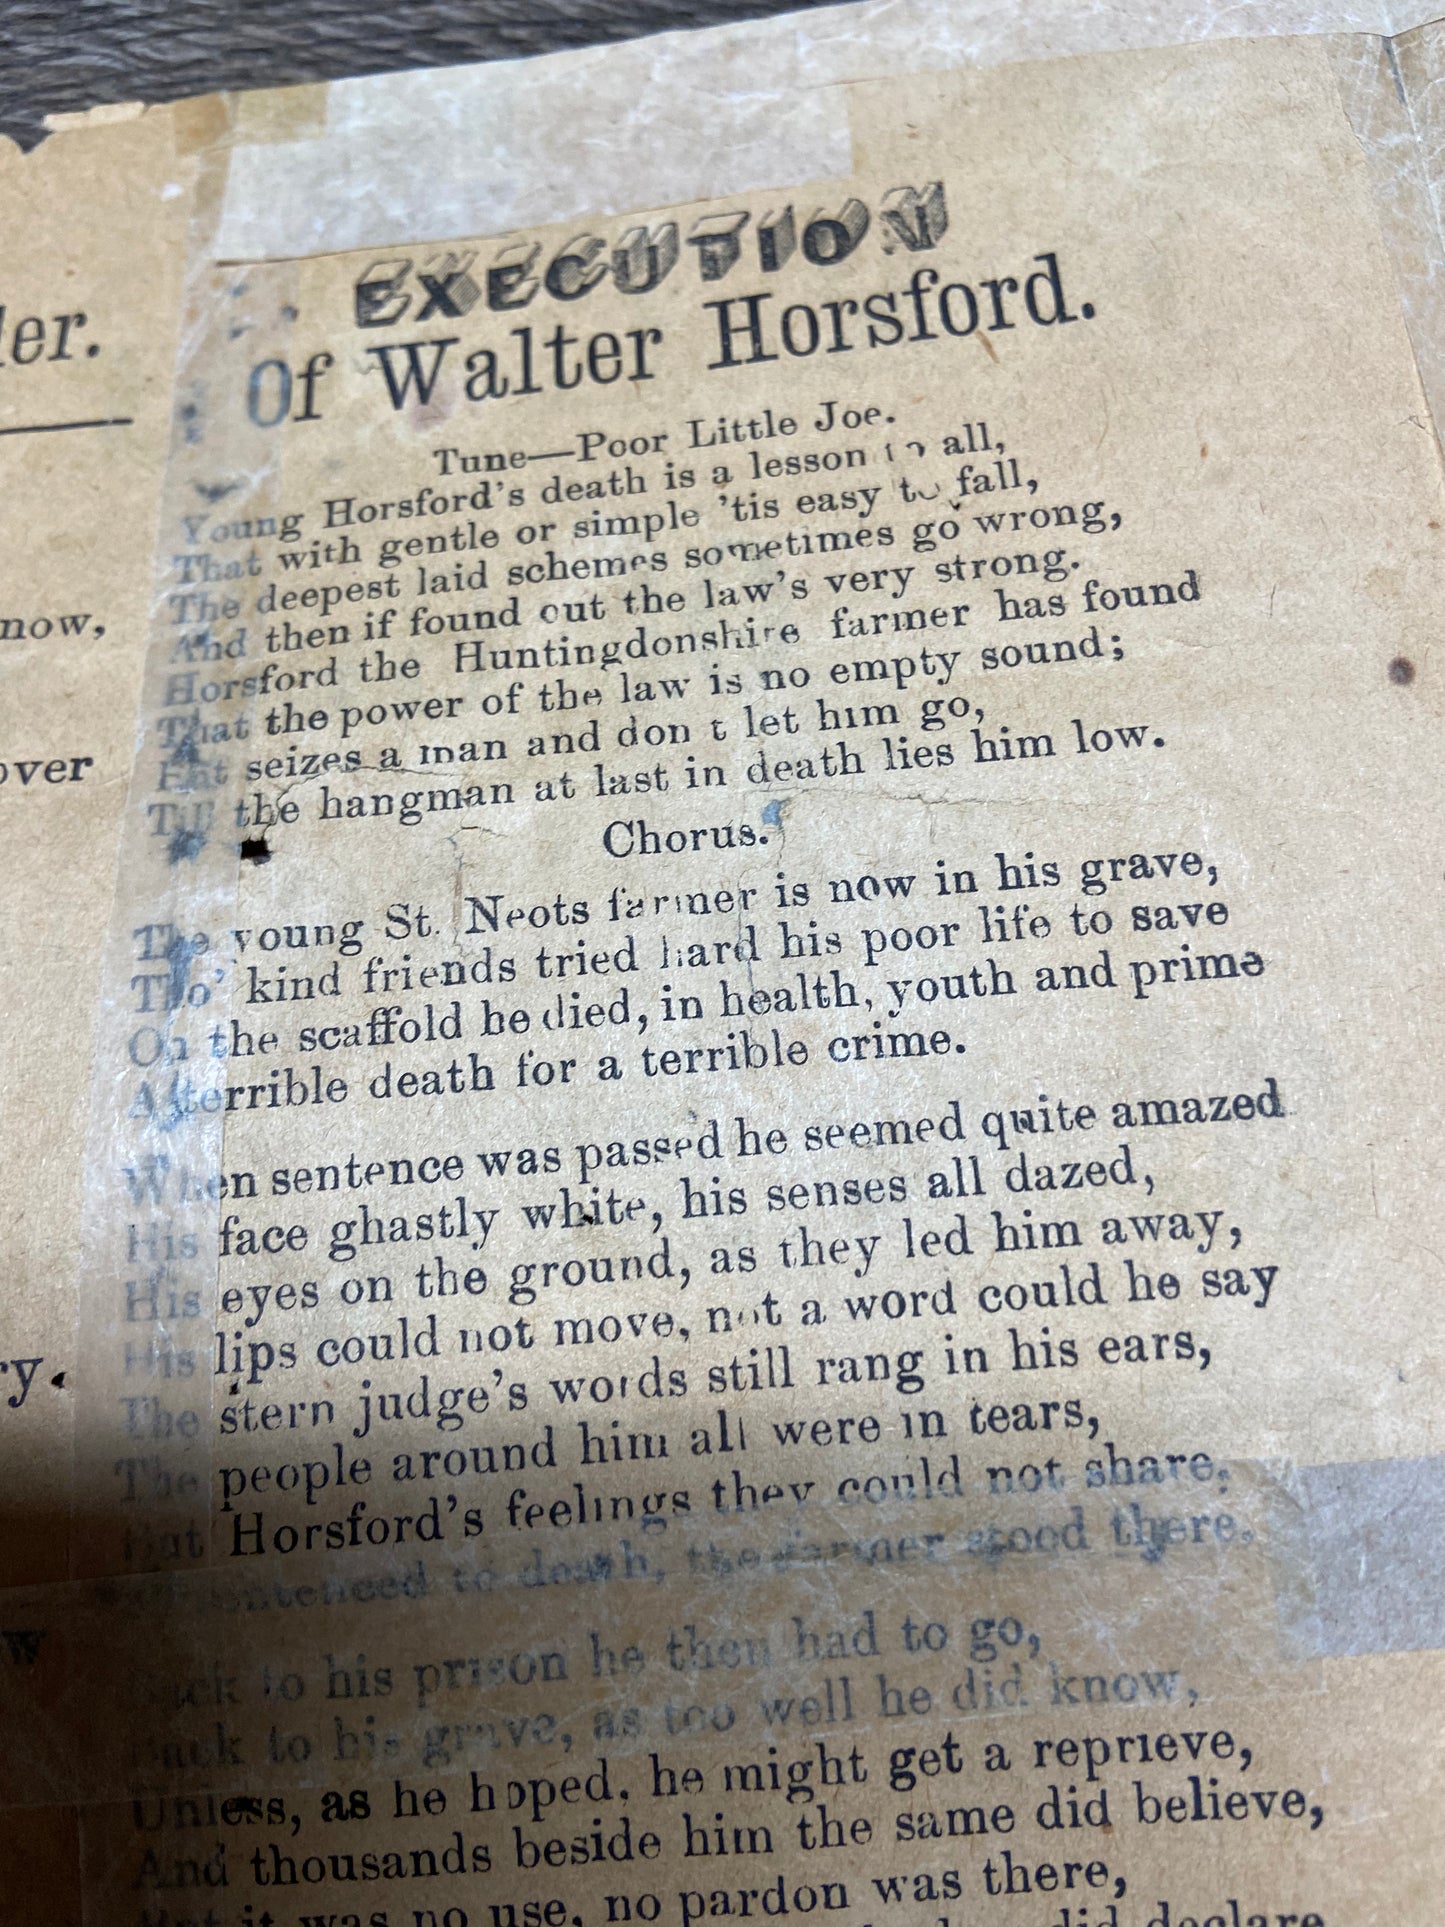 ler.
now,
over
ry.
w
EXECUTION
Of Walter Horsford.
Tune—Poor Little Joe.
Young Horsford's death is a lesson to all,
That with gentle or simple 'tis easy to fall,
The deepest laid schemes sometimes go wrong,
And then if found out the law's very strong.
Horsford the Huntingdonshire farmer has found
That the power of the law is no empty sound;
But seizes a man and don't let him go,
Till the hangman at last in death lies him low.
Chorus.
The young St. Neots farmer is now in his grave,
Tho' kind friends tried hard his poor life to save
On the scaffold he died, in health, youth and prime
A terrible death for a terrible crime.
When sentence was passed he seemed quite amazed
His face ghastly white, his senses all dazed,
His eyes on the ground, as they led him away,
His lips could not move, not a word could he say
The stern judge's words still rang in his ears,
The people around him all were in tears,
But Horsford's feelings they could not share,
sentenced to death, the farmer stood there.
Back to his prison he then had to go,
Back to his grave, as too well he did know,
Unless, as he hoped, he might get a reprieve,
And thousands beside him the same did believe,
But it was no use, no pardon was there,
did declare